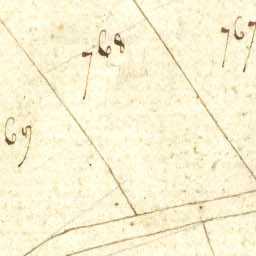 768
767
69